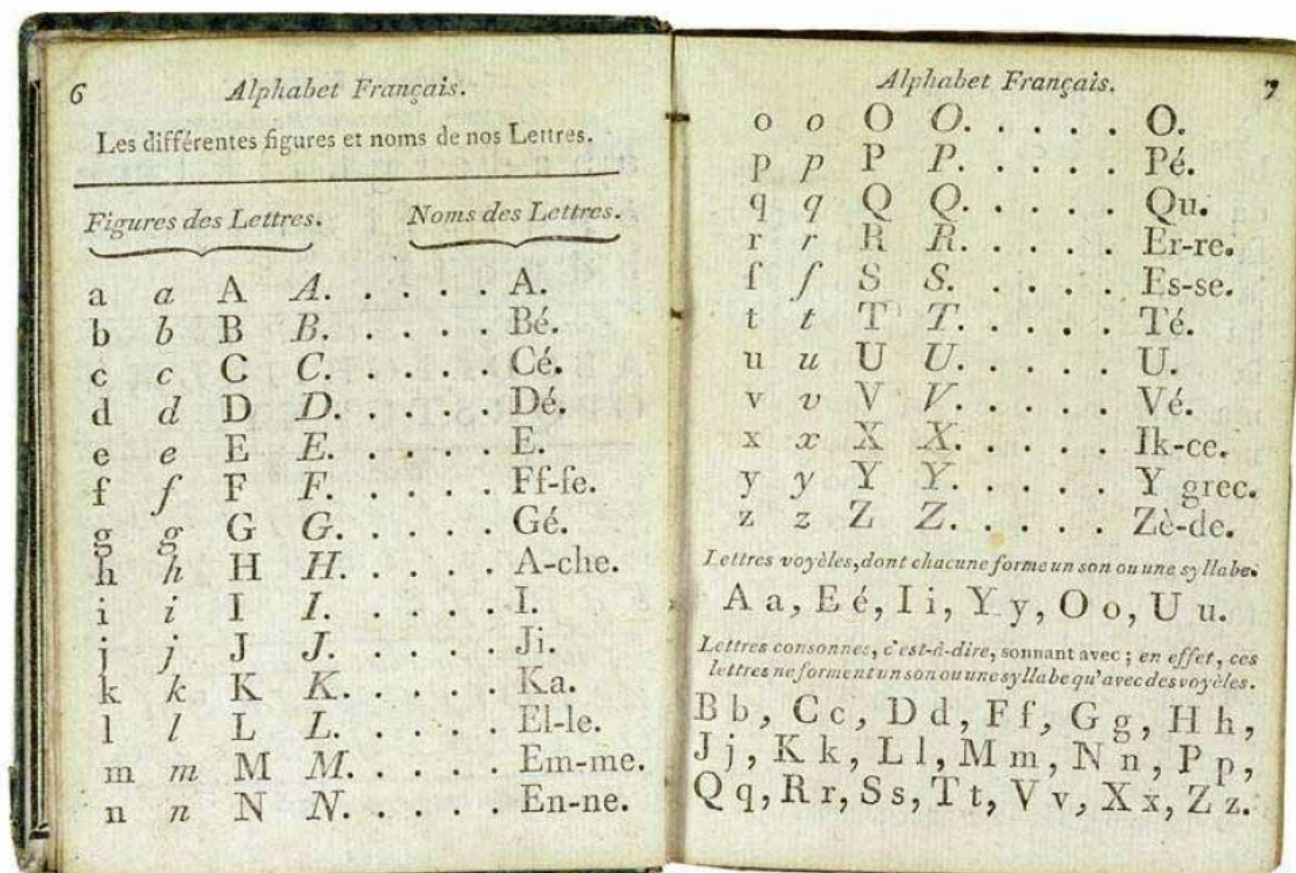 6 Alphabet Français.
Les différentes figures et noms de nos Lettres.
Figures des Lettres. Noms des Lettres.
a a A A. . . . . A.
b b B B. . . . . Bé.
c c C C. . . . . Cé.
d d D D. . . . . Dé.
e e E E. . . . . E.
f f F F. . . . . Ff-fe.
g g G G. . . . . Gé.
h h H H. . . . . A-che.
i i I I. . . . . I.
j j J J. . . . . Ji.
k k K K. . . . . Ka.
l l L L. . . . . El-le.
m m M M. . . . . Em-me.
n n N N. . . . . En-ne.
Alphabet Français. 7
o o O O. . . . . O.
p p P P. . . . . Pé.
q q Q Q. . . . . Qu.
r r R R. . . . . Er-re.
ſ ſ S S. . . . . Es-se.
t t T T. . . . . Té.
u u U U. . . . . U.
v v V V. . . . . Vé.
x x X X. . . . . Ik-ce.
y y Y Y. . . . . Y grec.
z z Z Z. . . . . Zè-de.
Lettres voyèles, dont chacune forme un son ou une syllabe.
A a, E é, I i, Y y, O o, U u.
Lettres consonnes, c'est-à-dire, sonnant avec ; en effet, ces
lettres ne forment un son ou une syllabe qu'avec des voyèles.
B b, C c, D d, F f, G g, H h,
J j, K k, L l, M m, N n, P p,
Q q, R r, S s, T t, V v, X x, Z z.